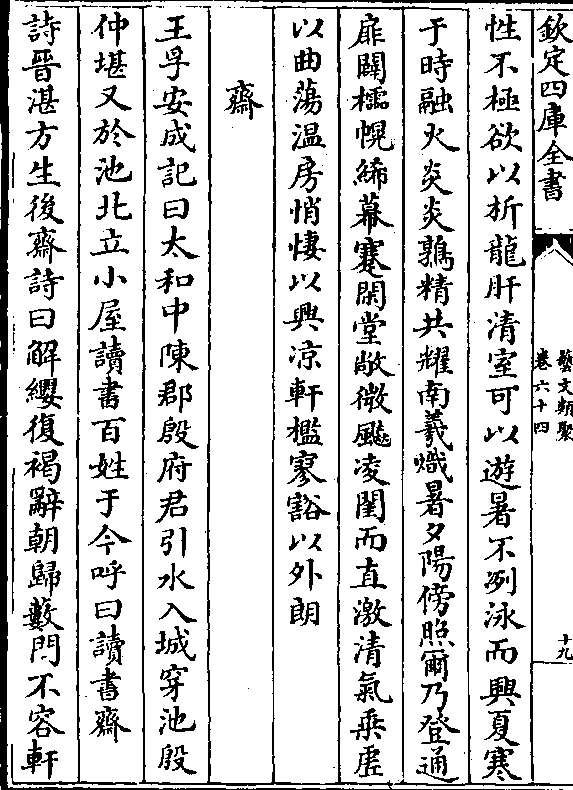 欽定四庫全書
藝文類聚
卷六十四
十九
性不極欲以析龍肝清室可以遊暑不冽泳而興夏寒
于時融火炎炎鶉精共耀南羲熾暑夕陽傍照爾乃登通
扉闢櫺幌絺幕搴閑堂敞微飈凌閨而直激清氣乗虚
以曲蕩温房悄悽以興凉軒檻寥豁以外朗
齋
王孚安成記曰太和中陳郡殷府君引水入城穿池殷
仲堪又於池北立小屋讀書百姓于今呼曰讀書齋
詩晉湛方生後齋詩曰解纓復褐辭朝歸藪門不容軒